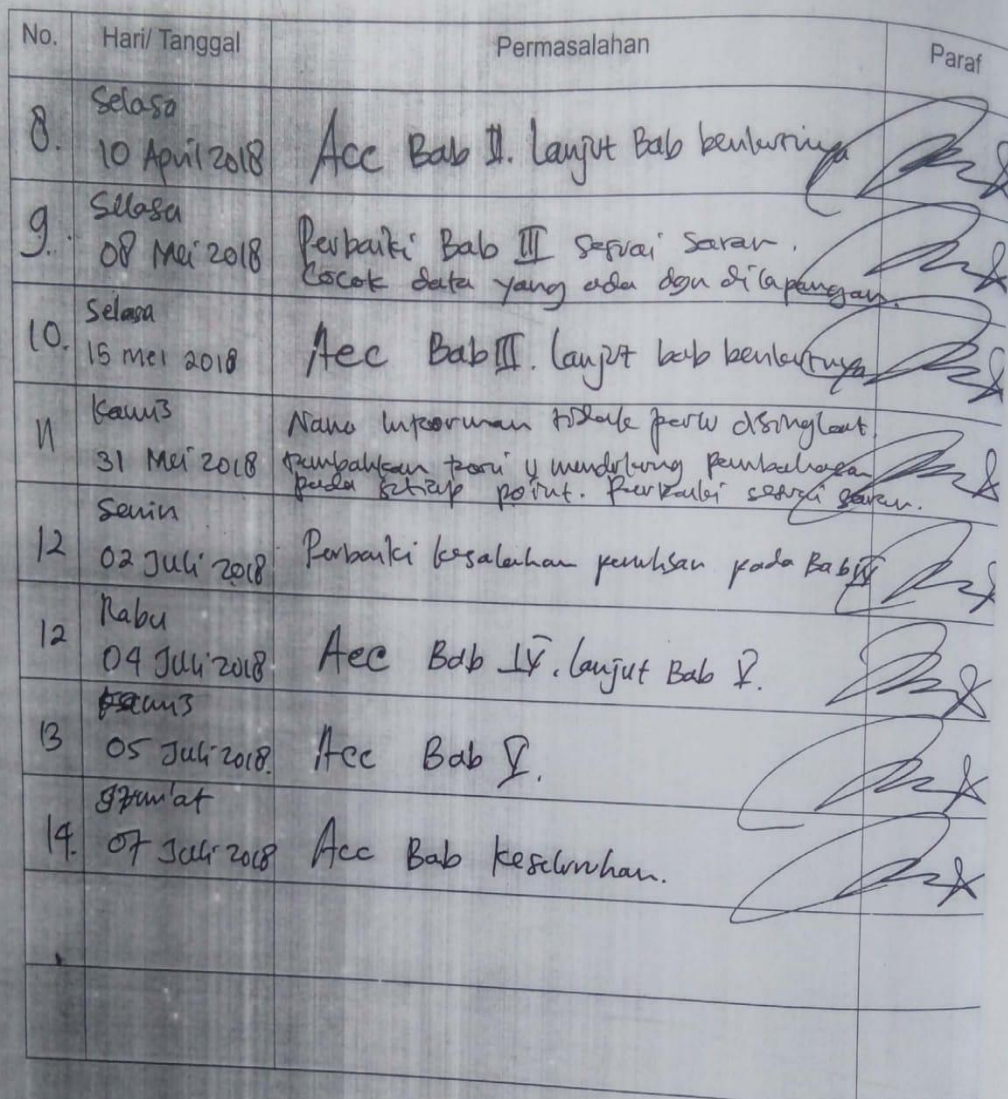 No. Hari/ Tanggal Permasalahan Paraf
8. Selasa
10 April 2018 Acc Bab II. Lanjut Bab berikutnya
9. Selasa
08 Mei 2018 Perbaiki Bab III sesuai saran.
Cocok data yang ada dgn dilapangan.
10. Selasa
15 Mei 2018 Acc Bab III. lanjut bab berikutnya
11 Kamis
31 Mei 2018 Nama Informan tidak perlu disingkat
tambahkan teori y mendukung pembahasan
pada setiap point. Perbaiki sesuai saran.
12 Senin
02 Juli 2018 Perbaiki kesalahan penulisan pada Bab IV
12 Rabu
04 Juli 2018 Acc Bab IV. lanjut Bab V.
13 Kamis
05 Juli 2018. Acc Bab V.
14. Jum'at
07 Juli 2018 Acc Bab keseluruhan.